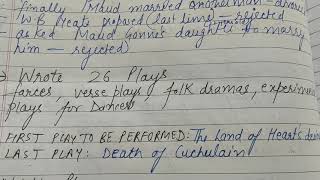 finally Maud married another man - divorc
WB Yeats proposed (last time) - rejected
asked Maud Gonne's daughter to marry
him - rejected)
→ Wrote 26 Plays
farces, verse plays, folk dramas, experimen
plays for Dancers
FIRST PLAY TO BE PERFORMED: The Land of Heart's desire
LAST PLAY: Death of Cuchulain